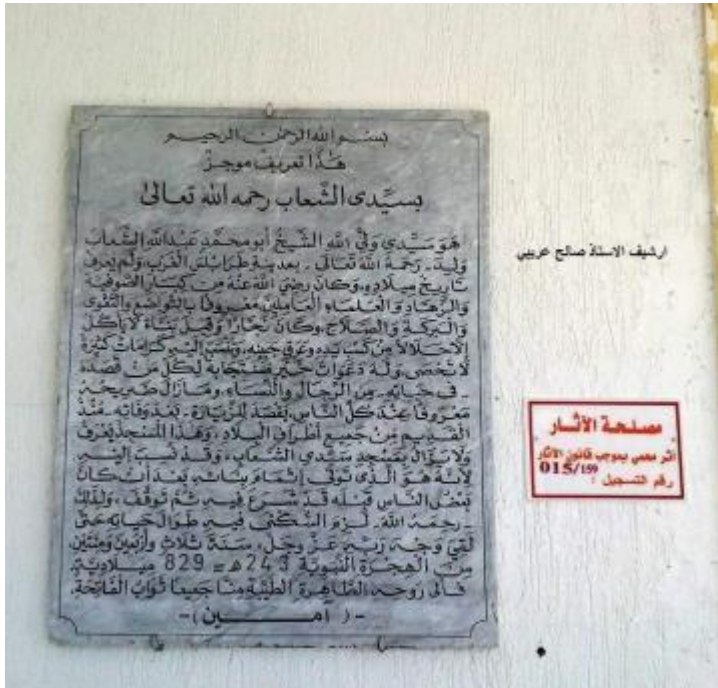 بسم الله الرحمن الرحيم
هذا تعريف موجز
بسيّدى الشّعاب رحمه الله تعالىٰ
هو سيّدي وليّ الله الشّيخ أبو محمّد عبد الله الشّعاب
وليه - رحمة الله تعالى - بمدينة طرابلس الغرب، ولم يعرف
تاريخ ميلاده، وكان رضي الله عنه من كبار الصّوفيّة
والزّهاد والعلماء العاملين معروفا بالتّواضع والتّقوى
والبركة والصّلاح، وكان نجّارا وقيل بنّاء لا يأكل
إلا حلالا من كسب يده وعرق جبينه، وتنسب إليه كرامات كثيرة
لا تحصى، وله دعوات خير مستجابة لكلّ من قصده
- في حياته - من الرّجال والنّساء، ومازال ضريحه
معروفا عند كلّ النّاس، يقصد للزّيارة - بعد وفاته - منذ
القديم من جميع أطراف البلاد، وهذا المسجد يعرف
ولا يزال بمسجد سيدي الشّعاب، وقد نسب إليه
لأنّه هو الّذي تولّى إتمام بنائه بعد أن كان
بعض النّاس قبله قد شرع فيه ثمّ توقّف، ولذلك
- رحمه الله - لزم السّكنى فيه طوال حياته حتّى
لقي وجه ربّه عزّ وجلّ، سنة ثلاث وأربعين ومئتين
من الهجرة النّبويّة 243 هـ = 829 ميلاديّة.
فالى روحه الطّاهرة الطيّبة منّا جميعا ثواب الفاتحة.
-( آمـــــين )-
ارشيف الاستاذ صالح عريبي
مصلحة الآثـار
أثر محمي بموجب قانون الآثار
015/159
رقم التسجيل :